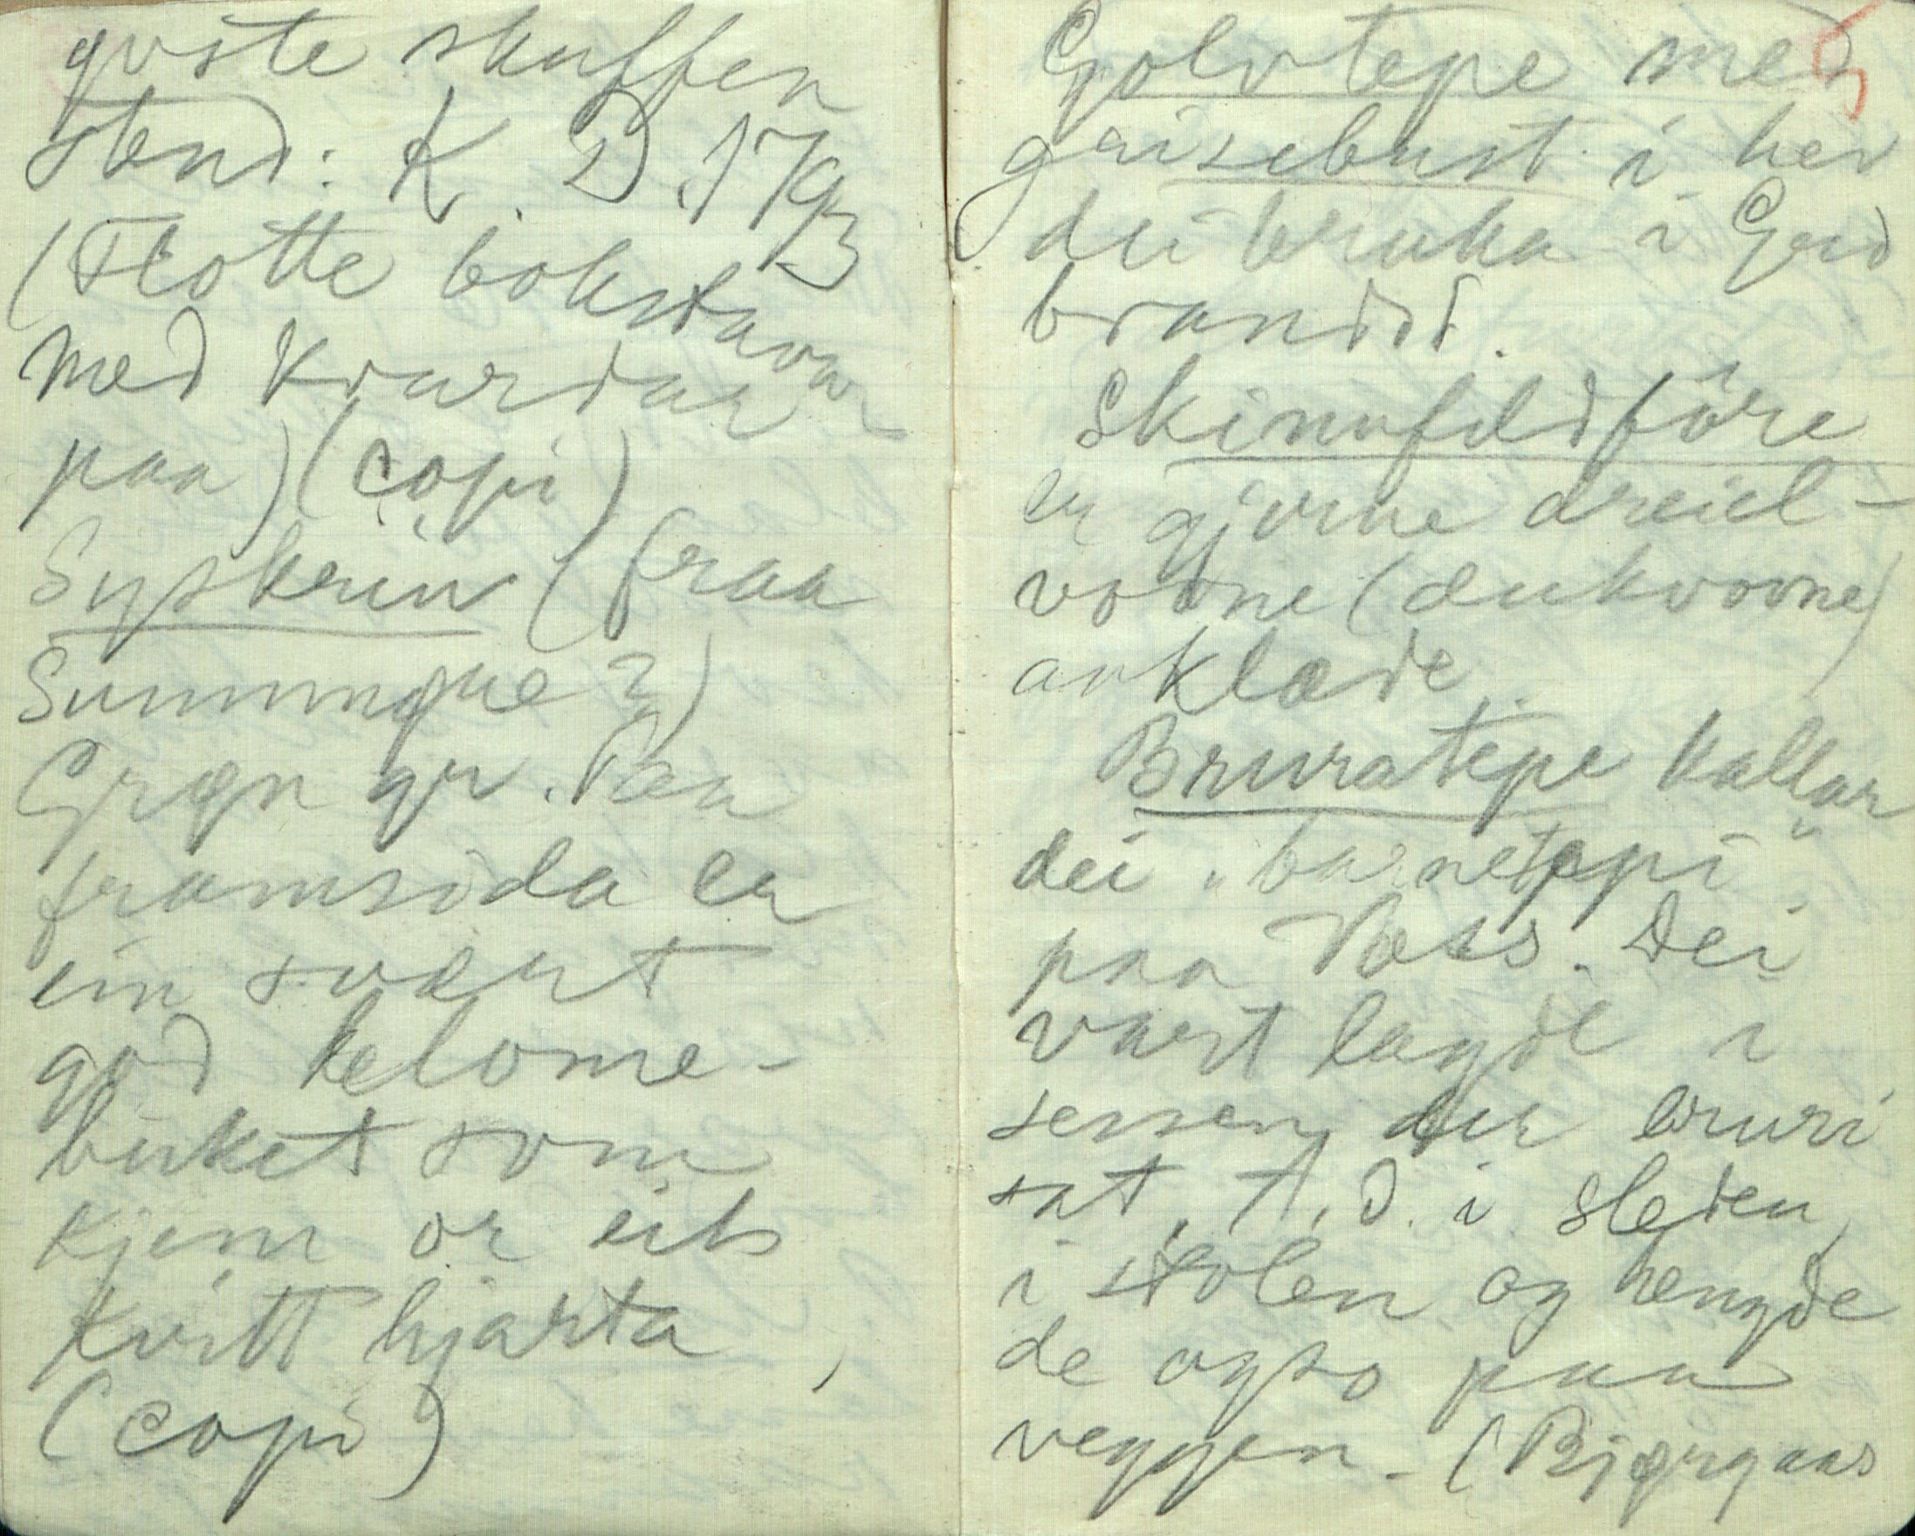 gvste skuffen
stend: K. D. 1793
(Flotte bokstavar
med krurdur
paa) (copi)
Syskrin (fraa
Sunnmøre?)
Grøn gr. Paa
framsida er
ein svært
god blome-
buket som
kjem or eit
kvitt hjarta,
(copi)
Golvtepe med
grisebust i her
dei bruka i Gud
brandsd.
Skinnfeldføre
er gjerne dreiel-
vovne (dukvovne)
aaklæde.
Bruratepe kallar
dei "barneteppi"
paa Voss. Dei
vart lagde i
sessen der bruri
sat, t.d. i sleden,
i stolen og hengde
de ogso paa
veggen. (Bjørgaas